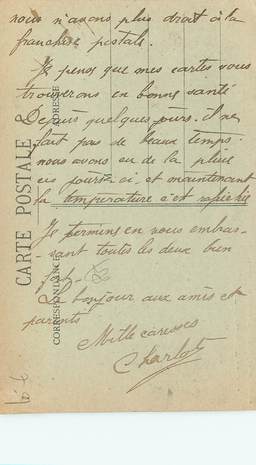 nous n'avons plus droit à la
franchise postale.
Je pense que mes cartes vous
trouverons en bonne santé
Depuis quelques jours il ne
fait pas de beaux temps.
nous avons eu de la pluie
ces jours-ci, et maintenant
la température s'est
Je termine en vous embras-
-sant toutes les deux bien
fort
Le bonjour aux amis et
parents
Mille caresses
Charlot
CARTE POSTALE
CORRESPONDANCE
ADRESSE